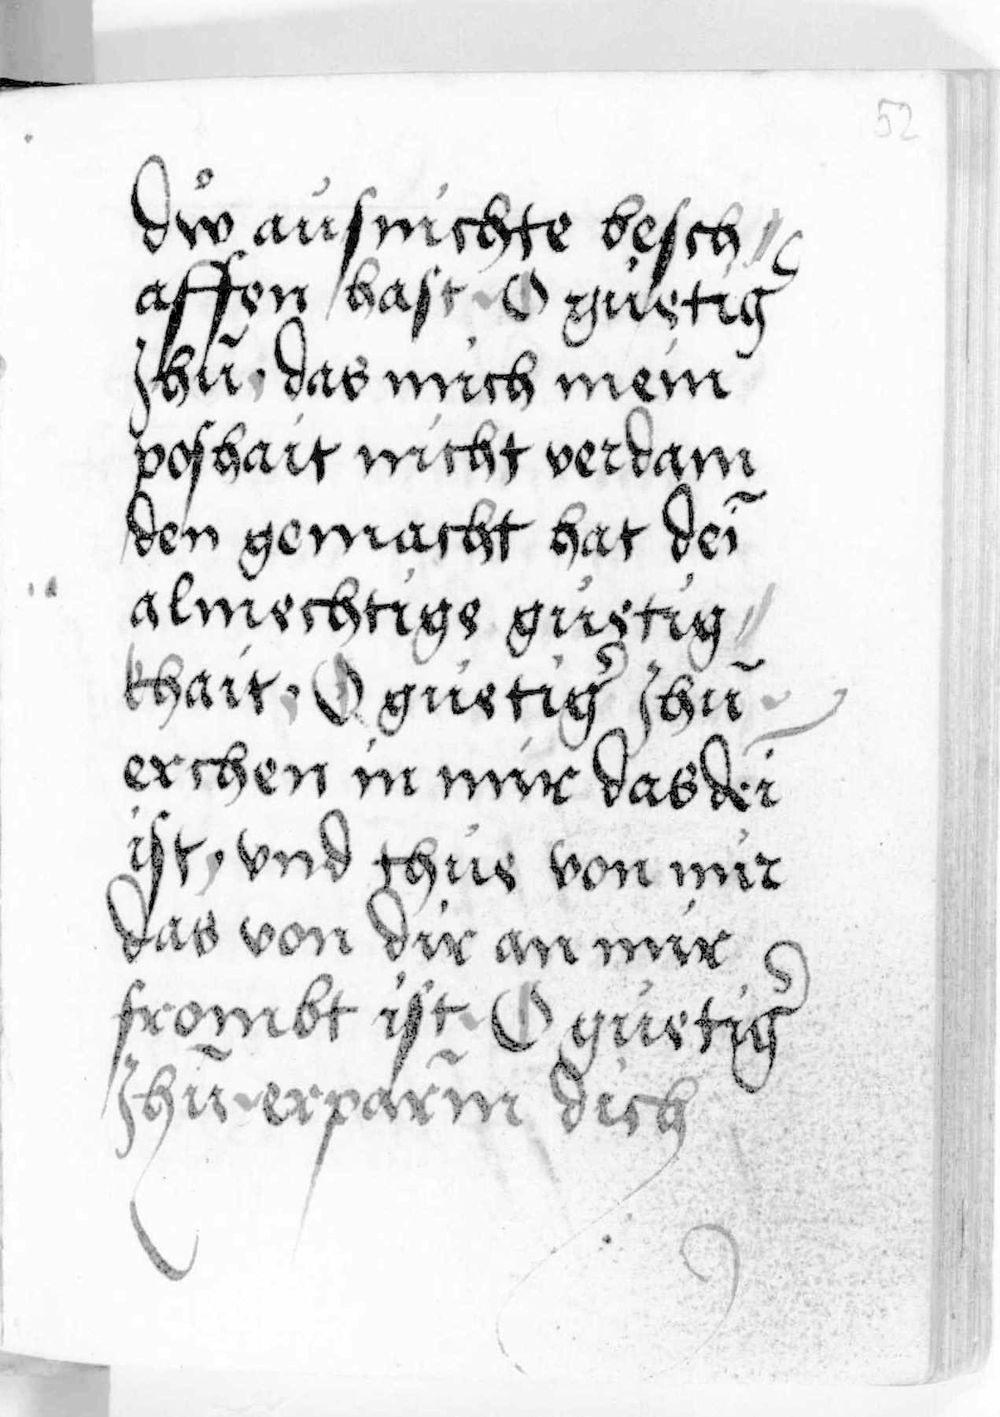 52
dẘ aus nichte besch //
affen hast · O güetig͛
Jhū · das mich mein
poshait nicht verdam
den gemacht hat dei͂
almechtige güetig //
khait · O güetig͛ Jhū ·
erchen in mir das dei͂
ist, vnd thüe von mir
das von dir an mir
frombt ist · O güetig͛
Jhū · erpar͂m dich